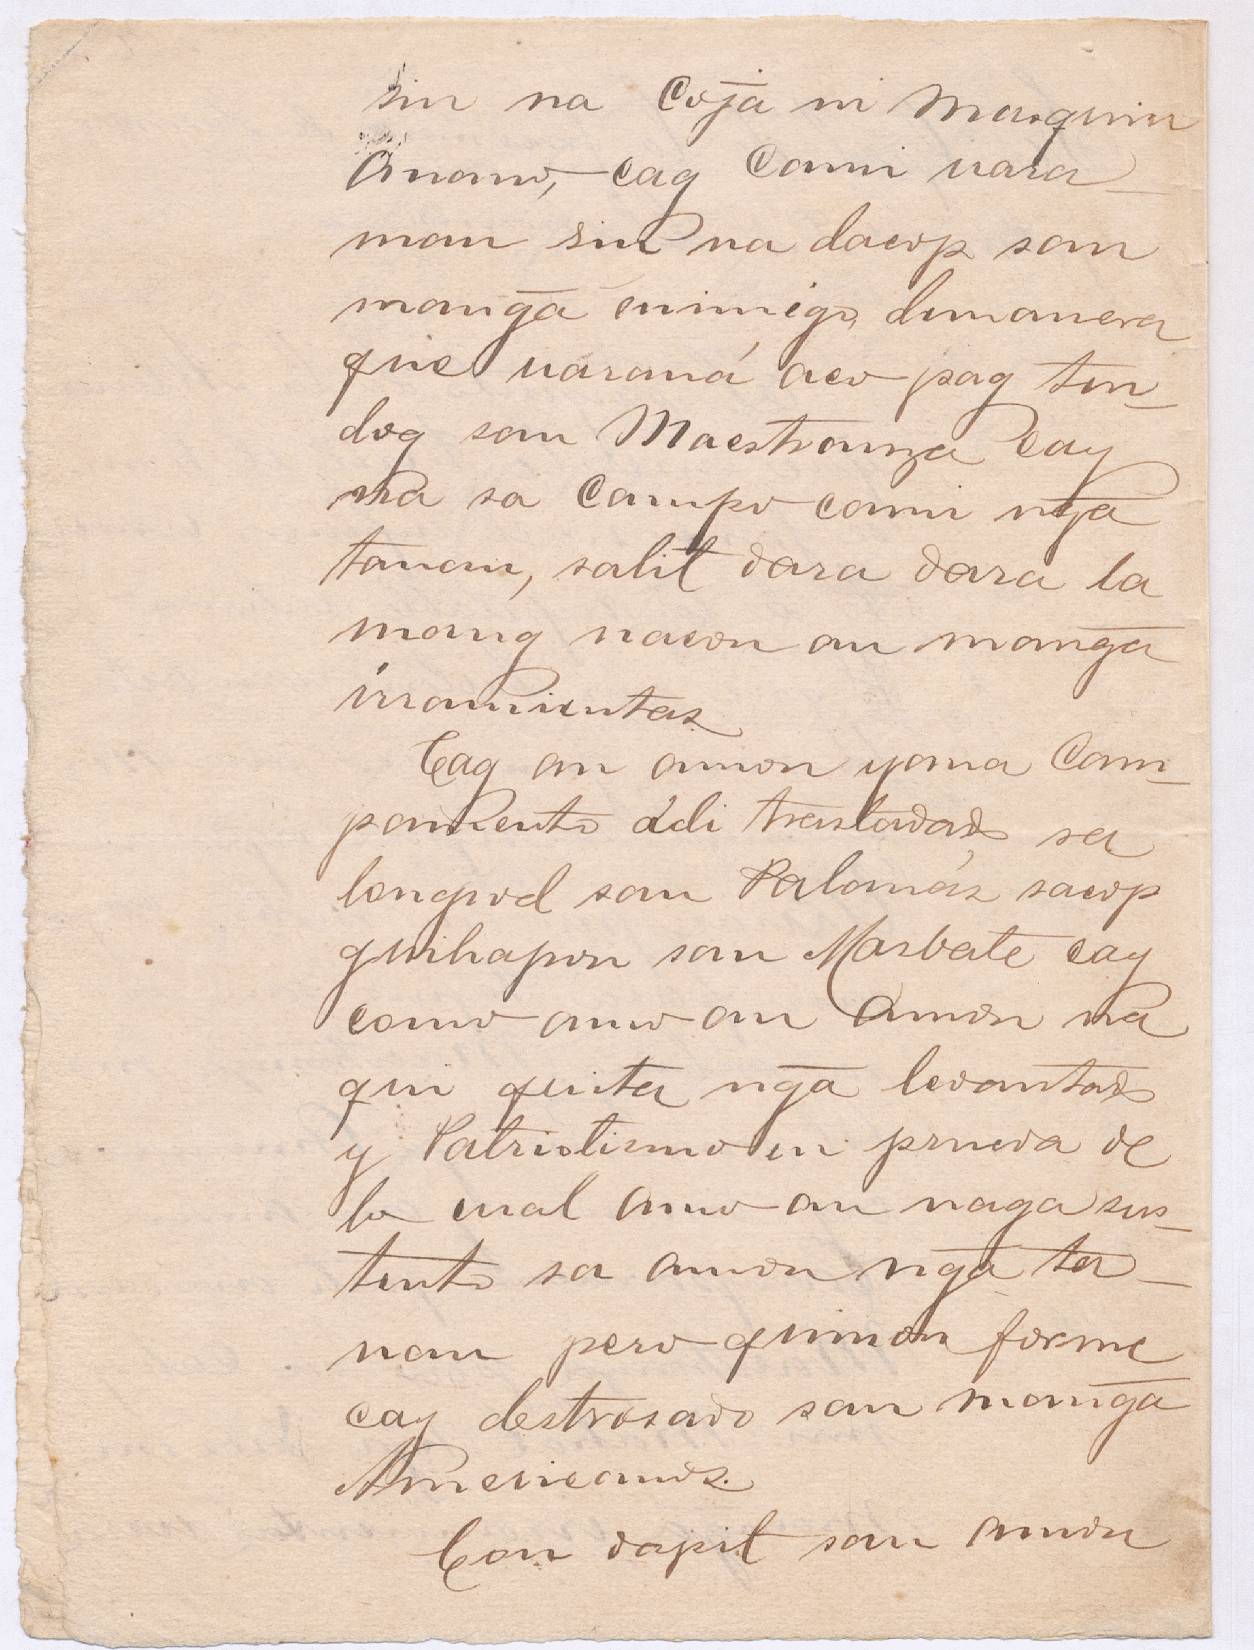 sin na Cojá ni Masquin
anano, cag Cami uara-
man sin na dacop san
mang̃a inimigo, dimanera
que uaraná aco pag tin-
dog san Maestranza cay
na sa Campo cami ng̃a
tanan, salit dara dara la
mang nacon an mang̃a
irramientas
Cag an amon yana Cam-
pamento didi trasladado sa
longsod san Palanás sacop
guihapon san Masbate cay
como amo an amon na
qui quita ng̃a levantado
y Patriotismo en prueva de
lo cual amo an naga sus-
tento sa amon ng̃a ta-
nan pero quinon forme
cay destrosado san mang̃a
Americanos.
Con dapit san amon